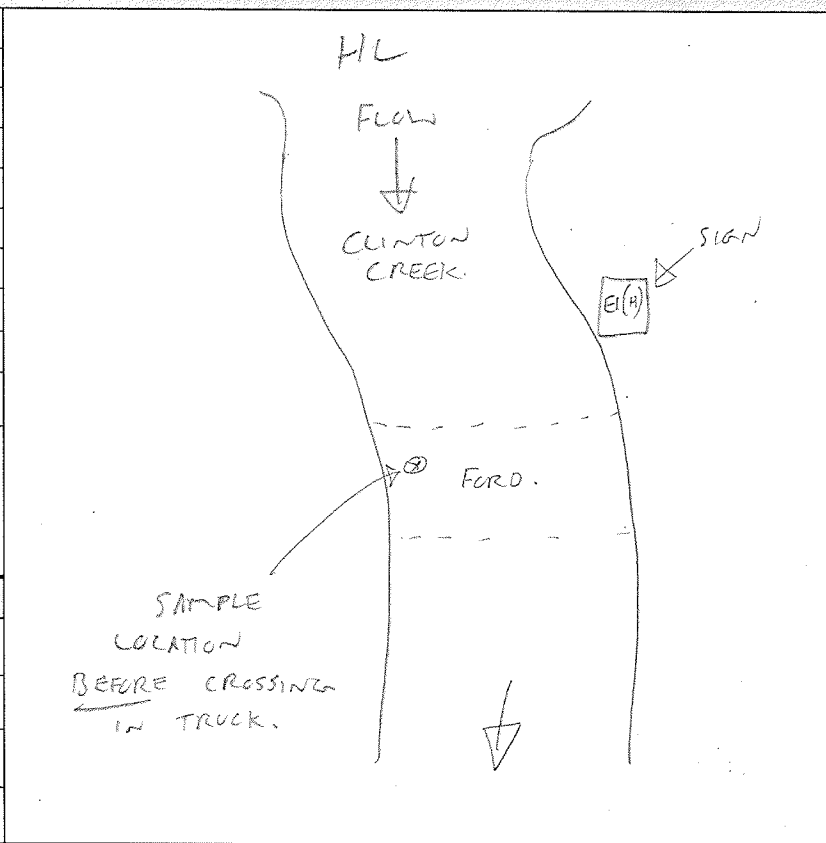 HL
FLOW
CLINTON
CREEK.
SIGN
E1(H)
FORD.
SAMPLE
LOCATION
BEFORE CROSSING
IN TRUCK.